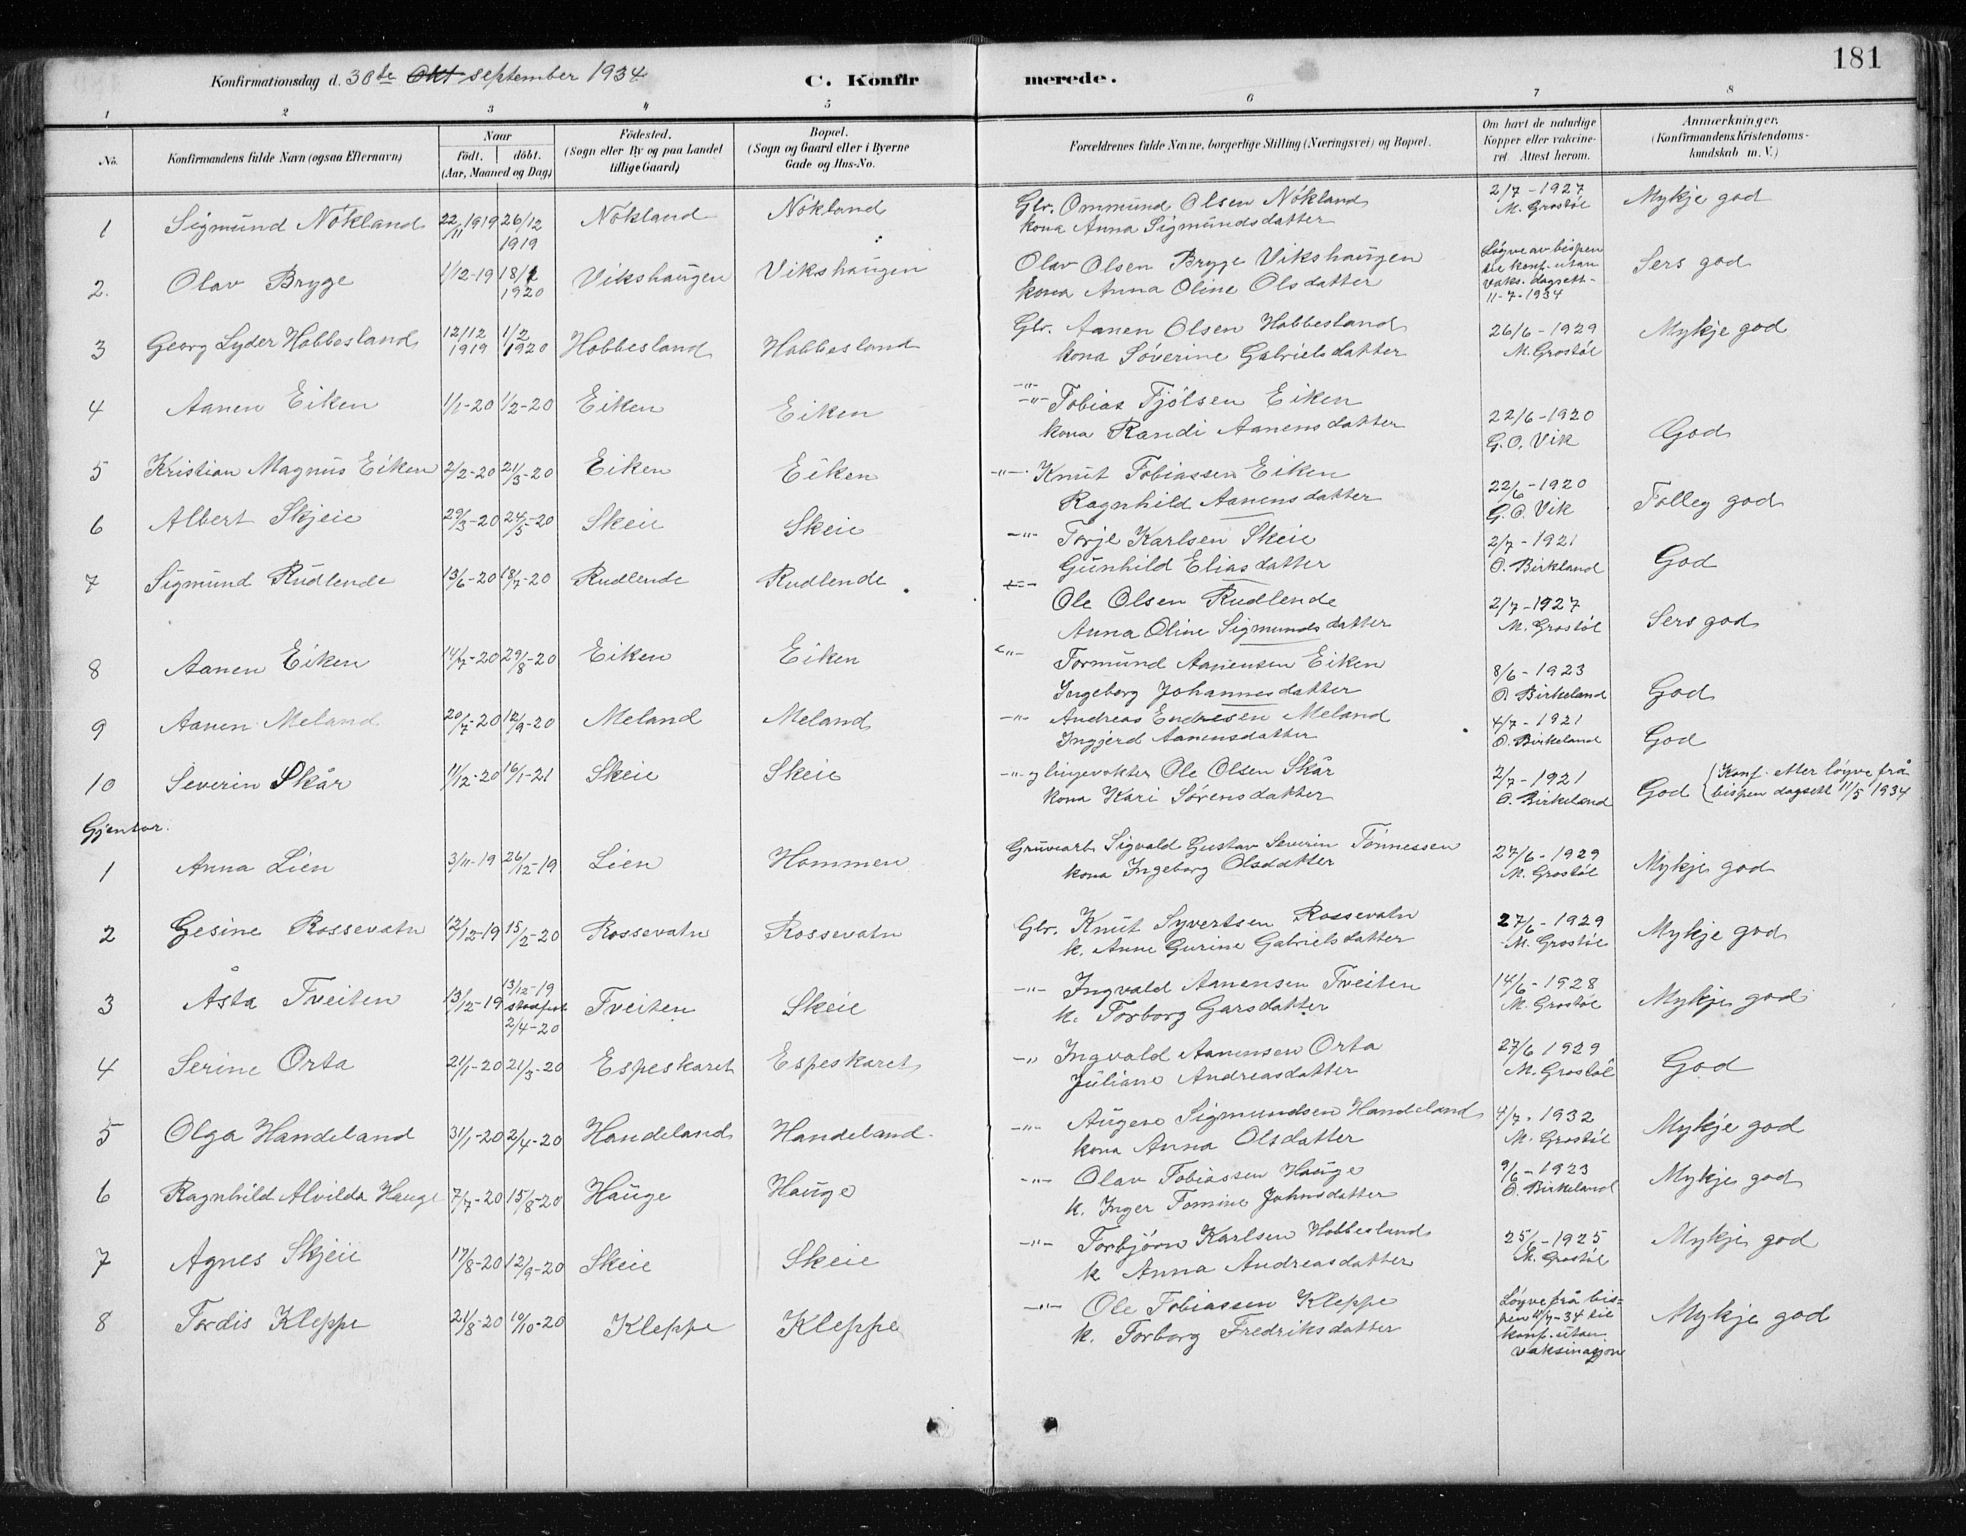 181
Konfirmationsdag d. 30te Okt september 1934 C. Konfirmerede.
1 2 3 4 5 6 7 8
No. Konfirmandens fulde Navn (ogsaa Efternavn) Naar födt. döbt. (Aar, Maaned og Dag) Födested. (Sogn eller By og paa Landet tillige Gaard) Bopæl. (Sogn og Gaard eller i Byerne Gade og Hus-No. Forældrenes fulde Navne, borgerlige Stilling (Næringsvei) og Bopæl. Om havt de naturlige Kopper eller vakcineret. Attest herom. Anmærkninger. (Konfirmandens Kristendomskundskab m. V.)
1 Sigmund Nökland 22/11 1919 26/12 1919 Nökland Nökland Gbr. Ommund Olsen Nökland kona Anna Sigmundsdatter 2/7-1927 M. Grostöl Mykje god
2. Olav Bryge 1/12-19 18/1 1920 Vikshaugen Vikshaugen Olav Olsen Bryge Vikshaugen kona Anna Oline Olsdatter Løyve av bispen til konf. utan vaks. dagsett 11-7-1934 Sers god
3 Georg Lyder Hobbesland 12/12 1919 1/2 1920 Hobbesland Hobbesland Gbr. Aanen Olsen Hobbesland kona Söverine Gabrielsdatter 26/6-1929 M. Grostöl Mykje god
4 Aanen Eiken 1/1-20 1/2-20 Eiken Eiken -"- Tobias Tjölsen Eiken kona Randi Aanensdatter 22/6-1920 G. O. Vik God
5 Kristian Magnus Eiken 2/2-20 21/3-20 Eiken Eiken -"- Knut Tobiassen Eiken Ragnhild Aanensdatter 22/6-1920 G. O. Vik Tolleg god
6 Albert Skjeie 29/3-20 24/5-20 Skeie Skeie -"- Torje Karlsen Skeie Gunhild Eliasdatter 2/7-1921 O. Birkland God
7 Sigmund Rudlende 13/6-20 18/7-20 Rudlende Rudlende -"- Ole Olsen Rudlende Anna Oline Sigmundsdatter 2/7-1927 M. Grostöl Sers god
8 Aanen Eiken 14/7-20 29/8-20 Eiken Eiken -"- Tormund Aanensen Eiken Ingeborg Johannesdatter 8/6-1923 O. Birkeland God
9 Aanen Meland 20/7-20 12/9-20 Meland Meland -"- Andreas Endresen Meland Ingjerd Aanensdatter 4/7-1921 O. Birkeland God
10 Severin Skår 11/12-20 16/1-21 Skeie Skeie -"- og linjevakter Ole Olsen Skår kona Kari Sørensdatter 2/7-1921 O. Birkeland God (Konf. etter løyve frå bispen dagsett 11/5 1934
Gjentor.
1 Anna Lien 3/11-19 26/12-19 Lien Hommen Gruvearb. Sigvald Gustav Severin Tönnessen kona Ingeborg Olsdatter 27/6-1929 M. Grostöl Mykje god
2 Gesine Rossevatn 12/12-19 15/2-20 Rossevatn Rossevatn Gbr. Knut Syvertsen Rossevatn k. Anne Gurine Gabrielsdatter 27/6-1929 M. Grostöl Mykje god
3 Åsta Tveiten 13/12-19 13/12-19 2/4-20 Tveiten Skeie -"- Ingvald Aanensen Tveiten k. Torborg Garsdatter 14/6-1928 M. Grostöl Mykje god
4 Serine Orta 21/1-20 21/3-20 Espeskaret Espeskaret -"- Ingvald Aanensen Orta Juliane Andreasdatter 27/6 1929 M. Grostöl God
5 Olga Handeland 31/1-20 2/4-20 Handeland Handeland -"- Augen Sigmundsen Handeland kona Anna Olsdatter 4/7-1932 M. Grostöl Mykje god
6 Ragnhild Alvilda Hauge 7/7-20 15/8-20 Hauge Hauge -"- Olav Tobiassen Hauge k. Inger Tomine Johnsdatter 9/6-1923 O. Birkeland Mykje god
7 Agnes Skjeie 17/8-20 12/9-20 Skeie Skeie -"- Torbjørn Karlsen Hobbesland k Anna Andreasdatter 25/6-1925 M. Grostöl Mykje god
8 Tordis Kleppe 21/8-20 10/10-20 Kleppe Kleppe -"- Ole Tobiassen Kleppe k. Torborg Fredriksdatter Løyve frå bispen 11/7-34 til konf. utan vaksinasjon Mykje god